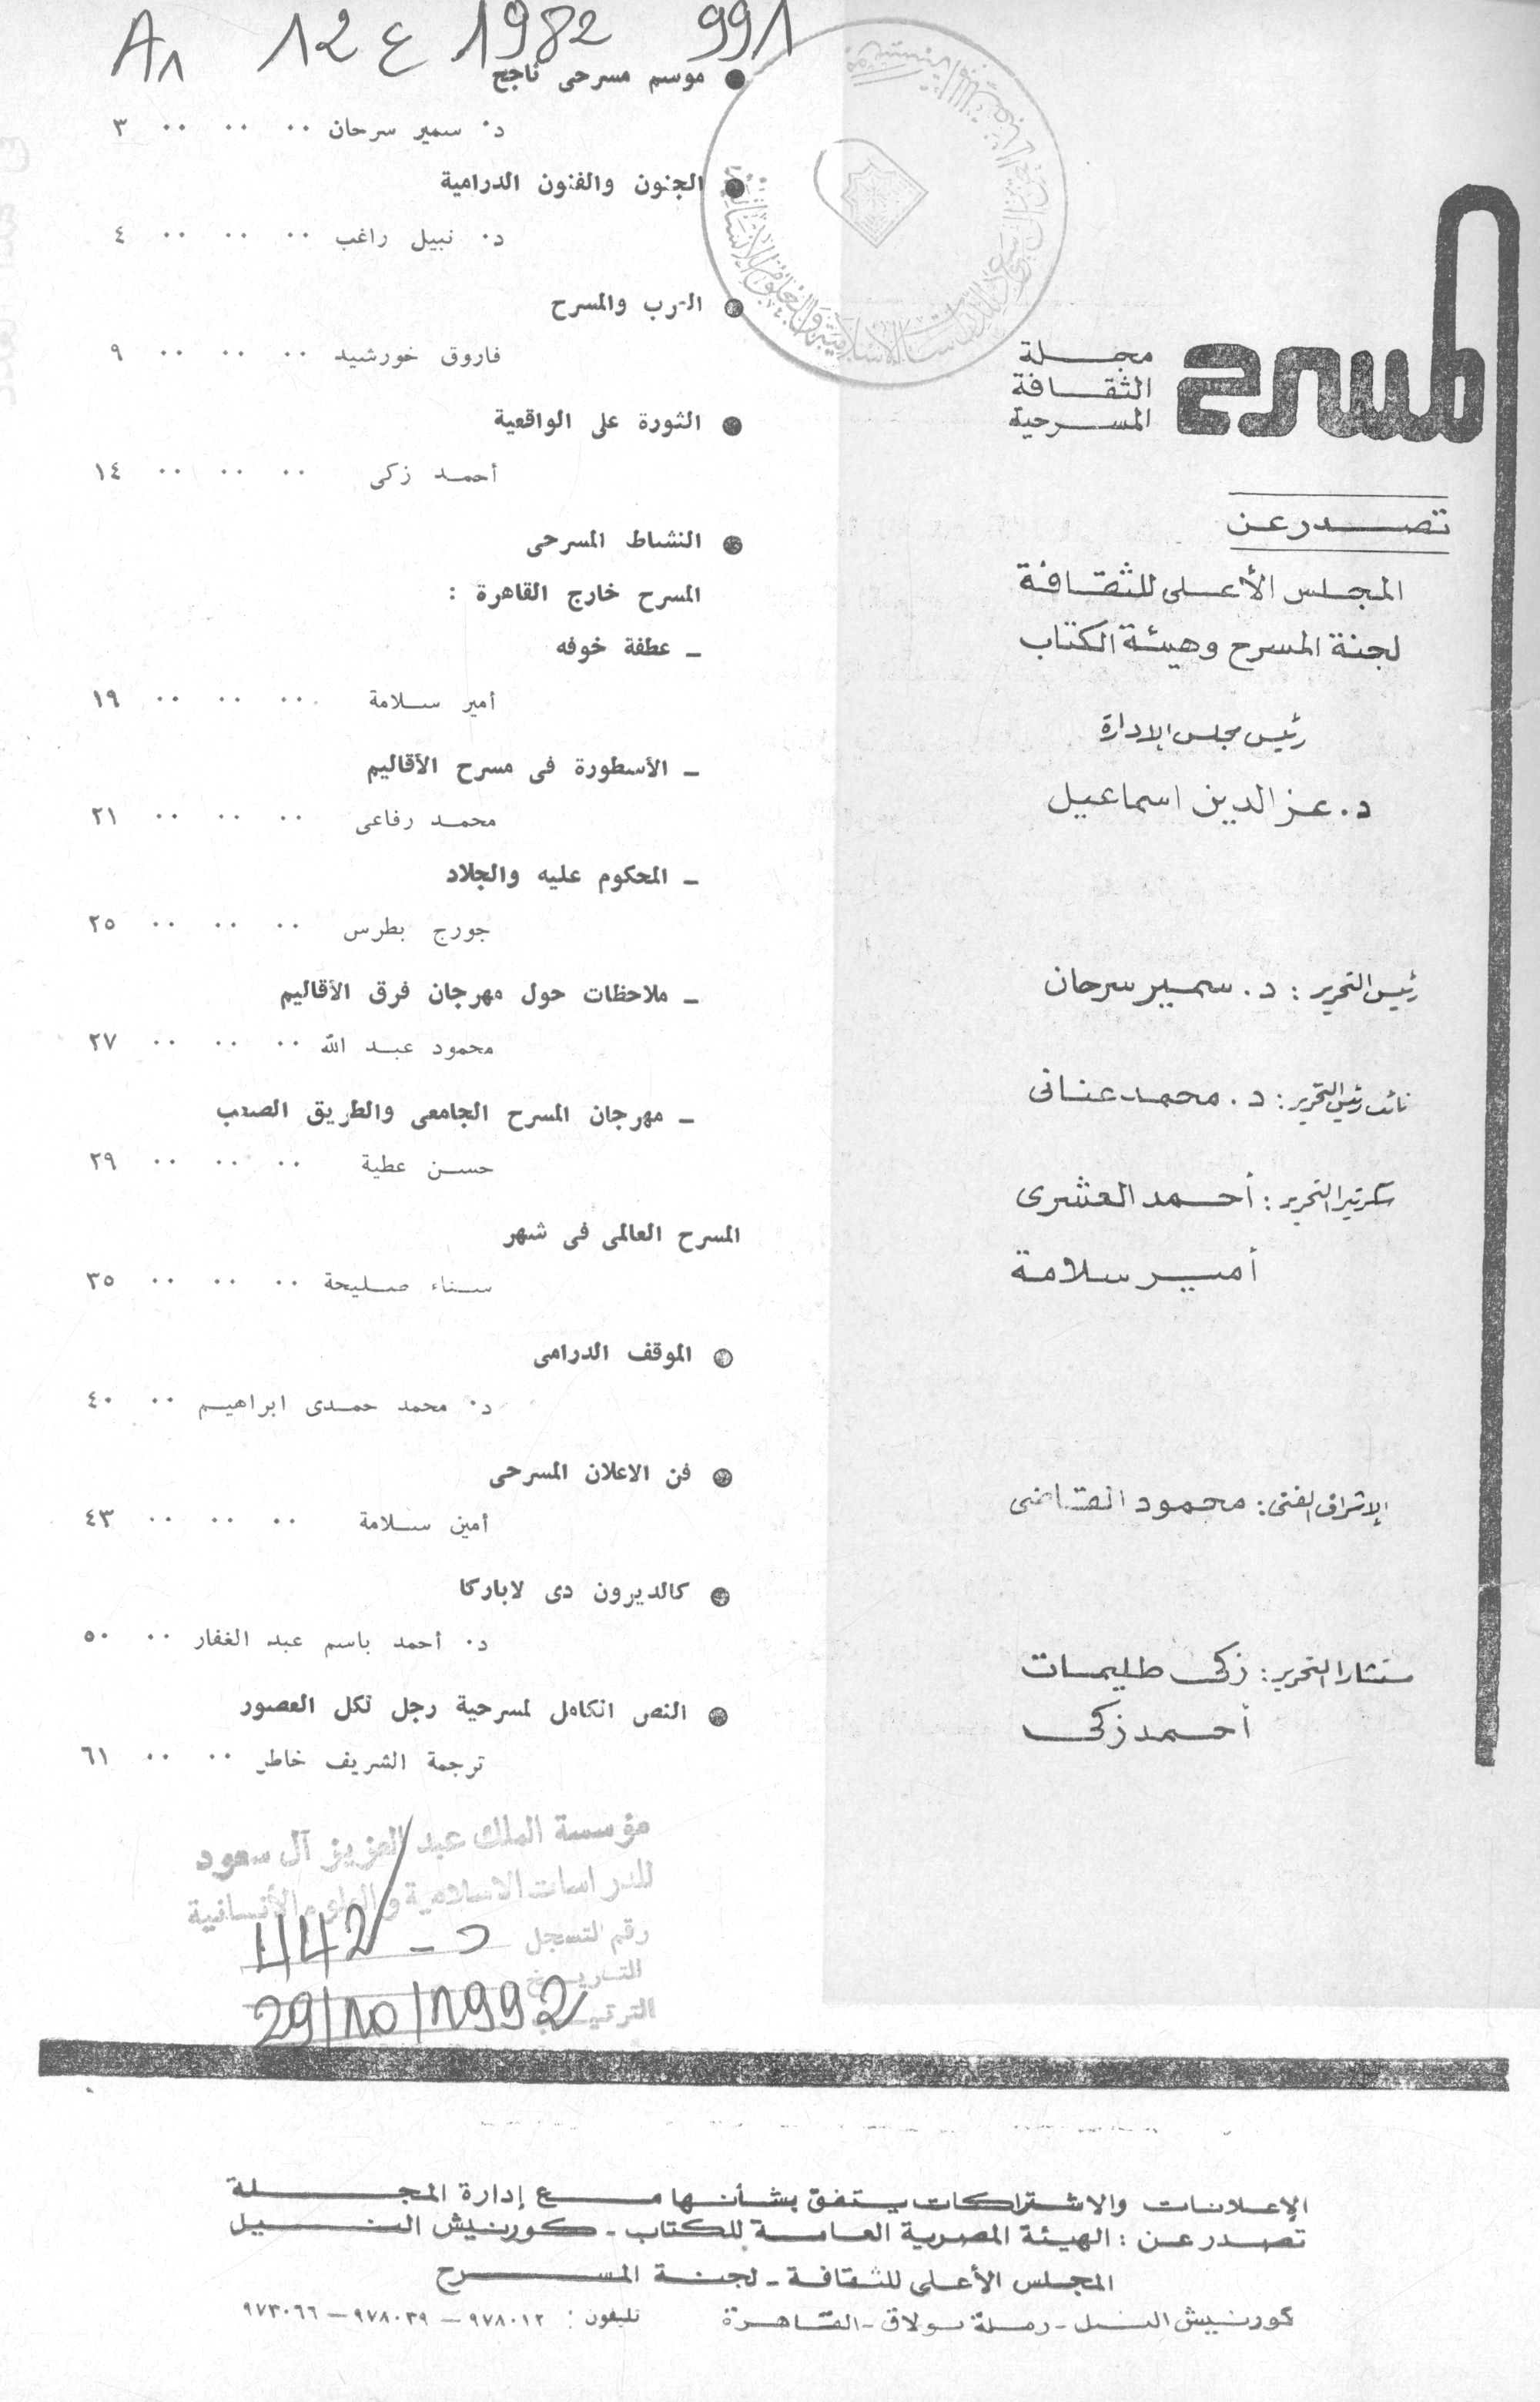 A1 12 ع 1982 991
المسرح
مجلة
الثقافة
المسرحية
تصدر عن
المجلس الأعلى للثقافة
لجنة المسرح وهيئة الكتاب
رئيس مجلس الإدارة
د. عز الدين اسماعيل
رئيس التحرير : د. سمير سرحان
نائب رئيس التحرير : د. محمد عنانى
سكرتيرا التحرير : أحمد العشرى
أمير سلامة
الإشراف الفنى : محمود القاضى
مستشارا التحرير : زكى طليمات
أحمد زكى
● موسم مسرحى ناجح
د. سمير سرحان .. .. .. ٣
● الجنون والفنون الدرامية
د. نبيل راغب .. .. .. ٤
● العرب والمسرح
فاروق خورشيد .. .. .. ٩
● الثورة على الواقعية
أحمد زكى .. .. .. ١٤
● النشاط المسرحى
المسرح خارج القاهرة :
– عطفة خوفه
أمير سلامة .. .. .. ١٩
– الأسطورة فى مسرح الأقاليم
محمد رفاعى .. .. .. ٢١
– المحكوم عليه والجلاد
جورج بطرس .. .. .. ٢٥
– ملاحظات حول مهرجان فرق الأقاليم
محمود عبد الله .. .. .. ٢٧
– مهرجان المسرح الجامعى والطريق الصعب
حسن عطية .. .. .. ٢٩
المسرح العالمى فى شهر
سناء صليحة .. .. .. ٣٥
● الموقف الدرامى
د. محمد حمدى ابراهيم .. ٤٠
● فن الاعلان المسرحى
أمين سلامة .. .. .. ٤٣
● كالديرون دى لاباركا
د. أحمد باسم عبد الغفار .. ٥٠
● النص الكامل لمسرحية رجل لكل العصور
ترجمة الشريف خاطر .. .. ٦١
مؤسسة الملك عبد العزيز آل سعود
للدراسات الاسلامية والعلوم الأنسانية
رقم التسجل د - 442
التاريخ
29/10/1992
الترتيب
الإعلانات والاشتراكات يتفق بشأنها مع إدارة المجلة
تصدر عن : الهيئة المصرية العامة للكتاب - كورنيش النيل
المجلس الأعلى للثقافة - لجنة المسرح
كورنيش النيل - رملة بولاق - القاهرة تليفون : ٩٧٨٠١٢ – ٩٧٨٠٣٩ – ٩٧٣٠٦٦